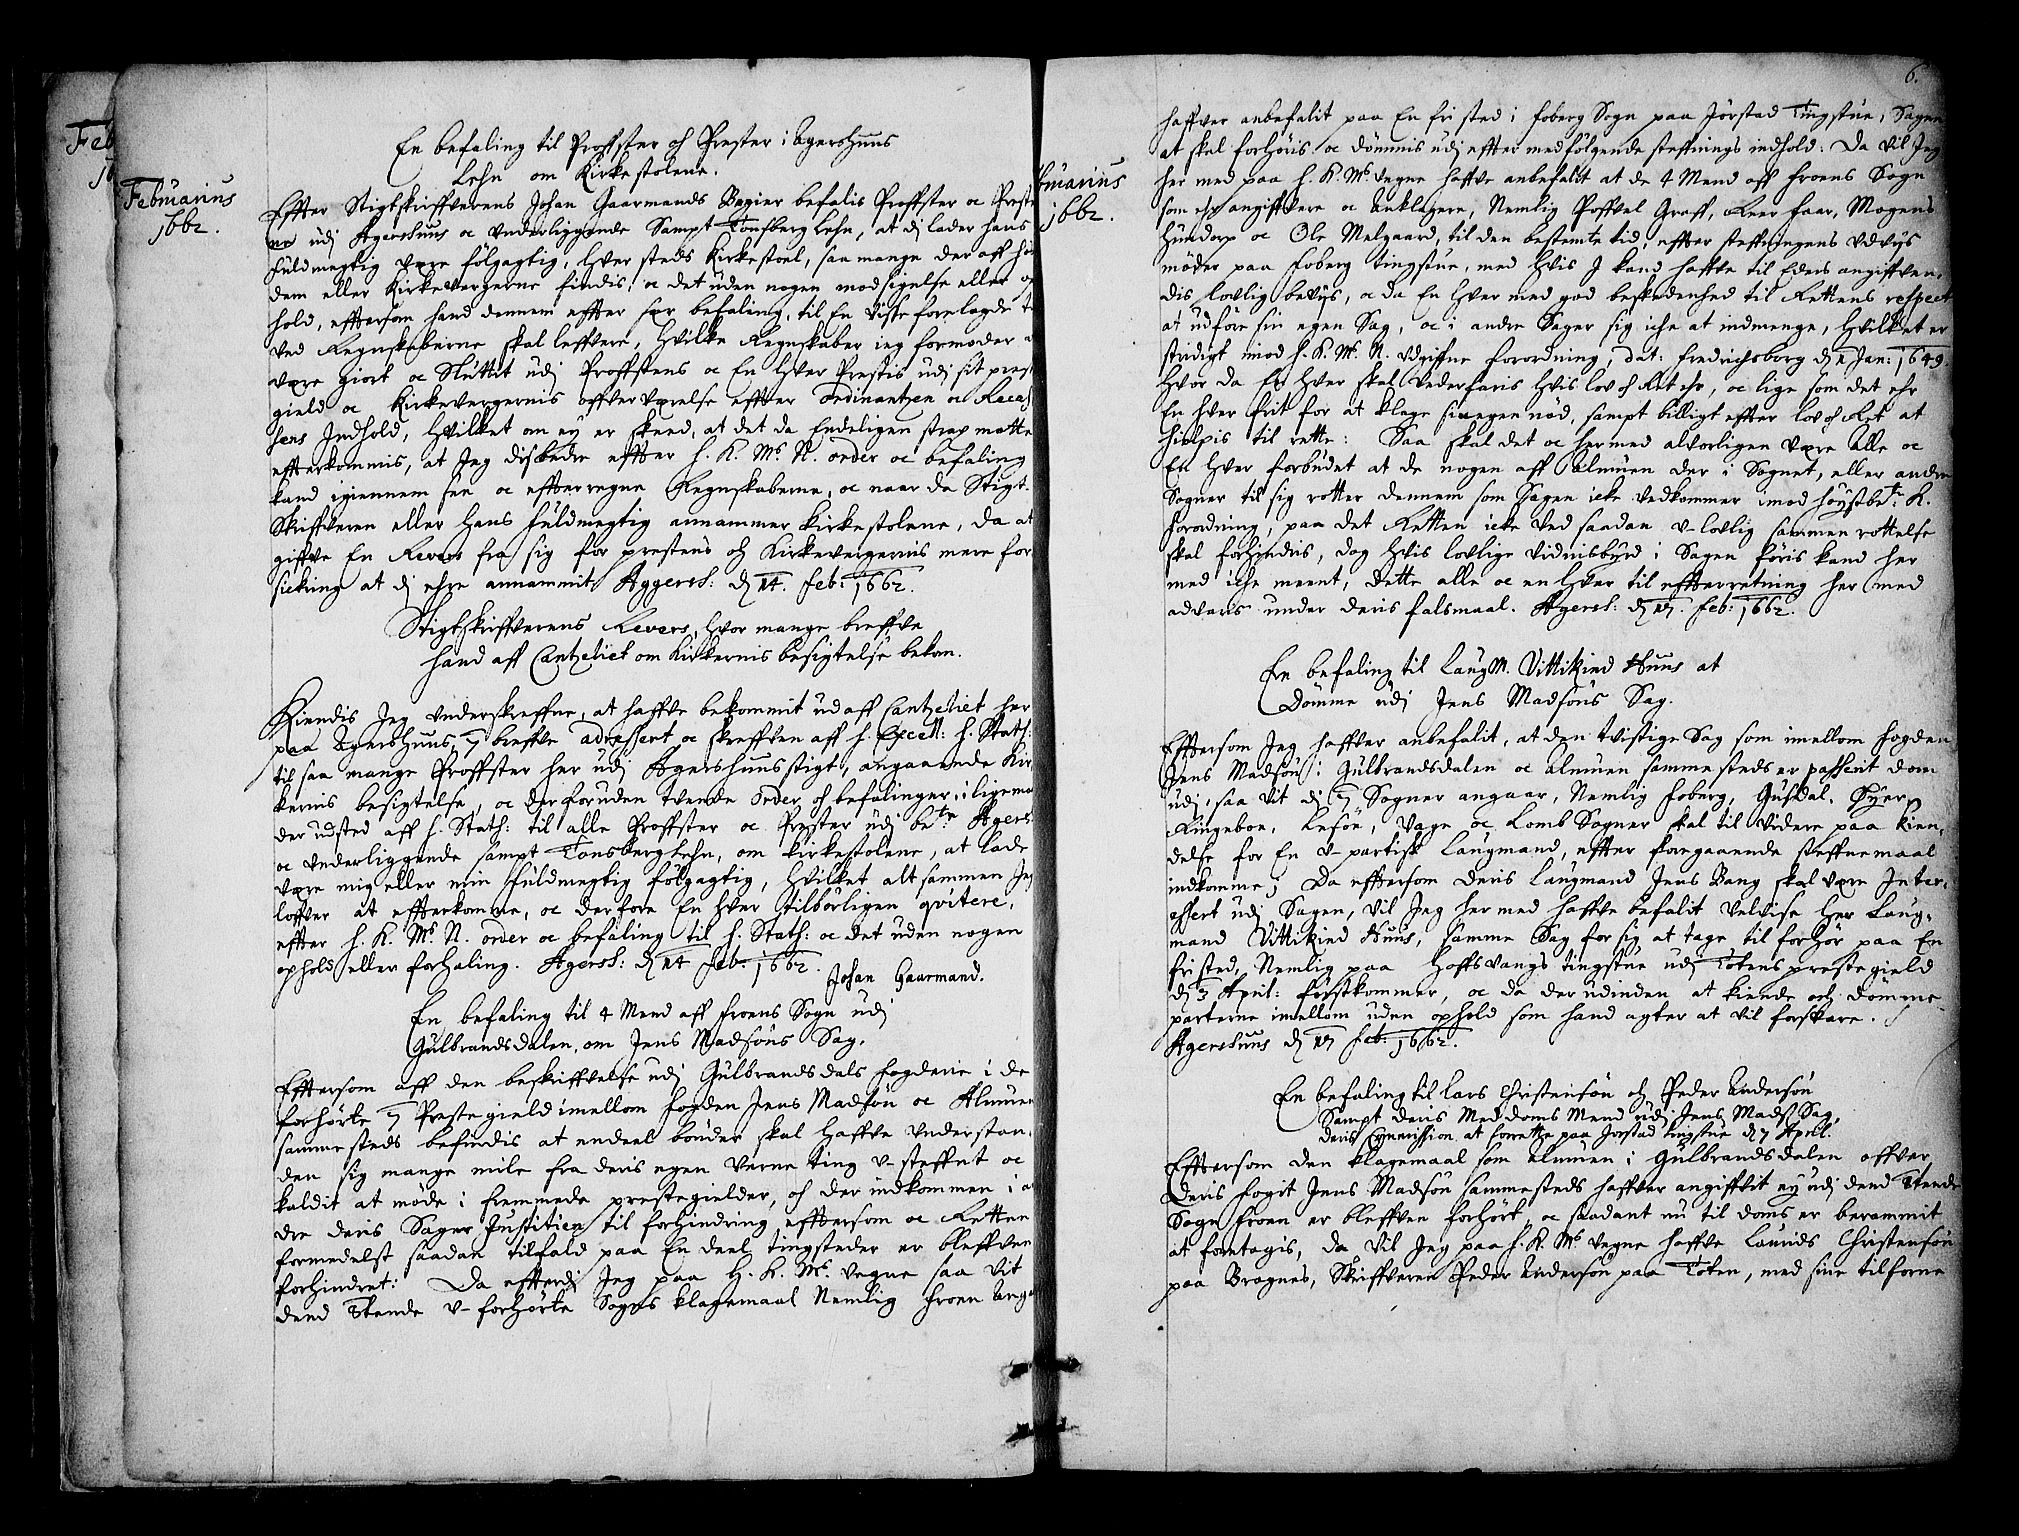 Februarius
1662.
En befaling til Proffster och Prester i Agershuus
Lehn om Kirkestolene.
Effter Stigtskriffverens Johan Gaarmands Begier befalis Proffster oc Preste
ne udj Agershuus oc Underliggende Sampt Tonsberg Lehn, at di lader hans
fuldmegtig være fölgagtig, hver steds Kirkestoel, saa mange der aff hös
dem eller Kirkevergerne findis, oc det uden nogen modsigelse eller op
hold, efftersom hand dennem effter før befaling, til En Visse forelagde t
ved Regnskaberne skal leffvere, hvilke Regnskaber ieg formoder a
være giort oc Sluttit udj Proffstens oc En hver Prestis udj sit prest
gield oc Kirkevergernis offververelse effter ordinantzen oc Reces
sens Indhold, hvilket om ey er skeed, at det da Endeligen strax motte
effterkommis, at Jeg disbedre effter h. K. Ms. N. order oc befaling
kand igiennem see oc effterregne Regnskaberne, oc naar da Stigt
Skriffveren eller hans fuldmegtig annammer kirkestolene, da at
giffve En Revers fra sig for prestens och Kirkevergernis mere for
sickring at di ehre annammit. Aggersh: d 14. Feb: 1662.
Stigtskriffverens Revers, hvor mange breffve
hand aff Cantzeliet om Kirkernis besigtelse bekom.
Kiendis Jeg Underskreffne, at haffve bekommit ud aff Cantzeliet her
paa Agershuus, 7 breffve adressert oc skreffven aff h. Excell: h. Stath:
til saa mange Proffster her udj Agershuus stigt, angaaende Kir
kernis besigtelse, oc derforuden tvende order och befalinger, i ligema
der udsted aff h. Stath: til alle Proffster oc Prester udj bete. Agers
oc Underliggende sampt Tonsberg Lehn, om kirkestolene, at lade
være mig eller min fuldmegtig fölgagtig, hvilket alt sammen Jeg
loffver at effterkomme, oc derfore En hver tilbörligen qvitere,
effter h. K. Ms. N. order oc befaling til h. Stath: oc det uden nogen
ophold eller forhaling. Agersh: d 14 Feb: 1662.
Johan Gaarmand.
En befaling til 4 Mend aff Froens Sogn udj
Gulbrandsdalen, om Jens Madsöns Sag.
Efftersom aff den beskriffvelse udj Gulbrandsdals fogderie i de
forhörte 7 Prestegield imellom fogden Jens Madsön oc Almuen
sammesteds befindis at endeel bönder skal haffve understan
den sig mange mile fra deris egen Verneting u-steffnt oc
kaldit at möde i fremmede prestegielder, och der indkommen i an
dre deris Sager Justitien til forhindring, efftersom oc Retten
formedelst saadan tilfald paa En deel tingsteder er bleffven
forhindret: Da effterdj Jeg paa H. K. Ms. vegne saa vit
dend Ottende u-forhörte Sogns klagemaal Nemlig Froen ang
6.
bruarius
1662.
haffver anbefalit paa En fri sted i Foberg Sogn paa Jörstad Tingstue, Sagen
at skal forhöris oc dömmis udj effter medfölgende steffnings indhold: Da vil Jeg
her med paa h. K. Ms. vegne haffve anbefalit at de 4 Mend aff Froens Sogn
som ehr angiffvere oc Anklagere, Nemlig Poffvel Graff, Peer Faar, Mogens
Hundorp oc Ole Melgaard, til den bestemte tid, effter steffningens Udviis
möder paa Foberg tingstue, med hvis J kand haffve til Eders angiffven-
dis lovlig beviis, oc da En hver med god beskedenhed til Rettens respect
at udföre sin egen Sag, oc i andre Sager sig iche at indmenge, hvilket er
stridigt imod h. K. Ms. N. Udgiffne Forordning, dat: Fredrichsborg d 1 Jan: 1649.
Hvor da En hver skal Vederfaris hvis lov och Ret ehr, oc lige som det ehr
En hver frit for at klage sin egen nöd, sampt billigt effter lov och Ret at
hielpis til rette: Saa skal det oc hermed alvorligen være alle oc
En hver forbudet at de nogen aff Almuen der i Sognet, eller andre
Sogner til sig rotter dennem som Sagen icke vedkommer imod höystbete. K.
Forordning, paa det Retten icke ved saadan u-lovlig sammen rottelse
skal forhindris, dog hvis lovlige Vidnisbyrd i Sagen föris kand her
med iche meent, Dette alle oc en hver til effterretning her med
advaris under deris falsmaal. Agersh: d 17. Feb: 1662.
En befaling til LaugM. Vittikind Huus at
Dömme udj Jens Madsöns Sag.
Efftersom Jeg haffver anbefalit, at den tvistige Sag som imellom fogden
Jens Madsön i Gulbrandsdalen oc Almuen sammesteds er passerit dom
udj, saa vit di 7 Sogner angaar, Nemlig Foberg, Gusdal, Öyer,
Ringeboe, Lesöe, Vage oc Lomb Sogner skal til videre paa kien-
delse for En U-partisk Laugmand, effter foregaaende steffnemaal
indkomme; Da efftersom deris Laugmand Jens Bang skal være Inter-
essert udj Sagen, Vil Jeg her med haffve befalit Velvise Her Laug-
mand Vittikind Huus, samme Sag for sig at tage til forhör paa En
fri sted, Nemlig paa Hoffsvangs tingstue udj Totens prestegield
d 3 April: förstkommer, oc da der udinden at kiende och dömme
parterne imellom uden ophold som hand agter at vil forsvare.
Agershuus d 17 Feb: 1662.
En befaling til Lars Christensön och Peder Andersön
Sampt deris Meddoms Mend udj Jens Mads: Sag,
deris Commission at forrette paa Jörstad tingstue d 7 April.
Efftersom den klagemaal som Almuen i Gulbrandsdalen offver
Deris fogit Jens Madsön sammesteds haffver angiffvit ey udj dend Ottende
Sogn Froen er bleffven forhört, oc saadant nu til doms er berammit
at foretagis, da vil Jeg paa h. K. Ms. vegne haffve Laurids Christensön
paa Bragnes, Skriffveren Peder Andersön paa Toten, med sine tilforne